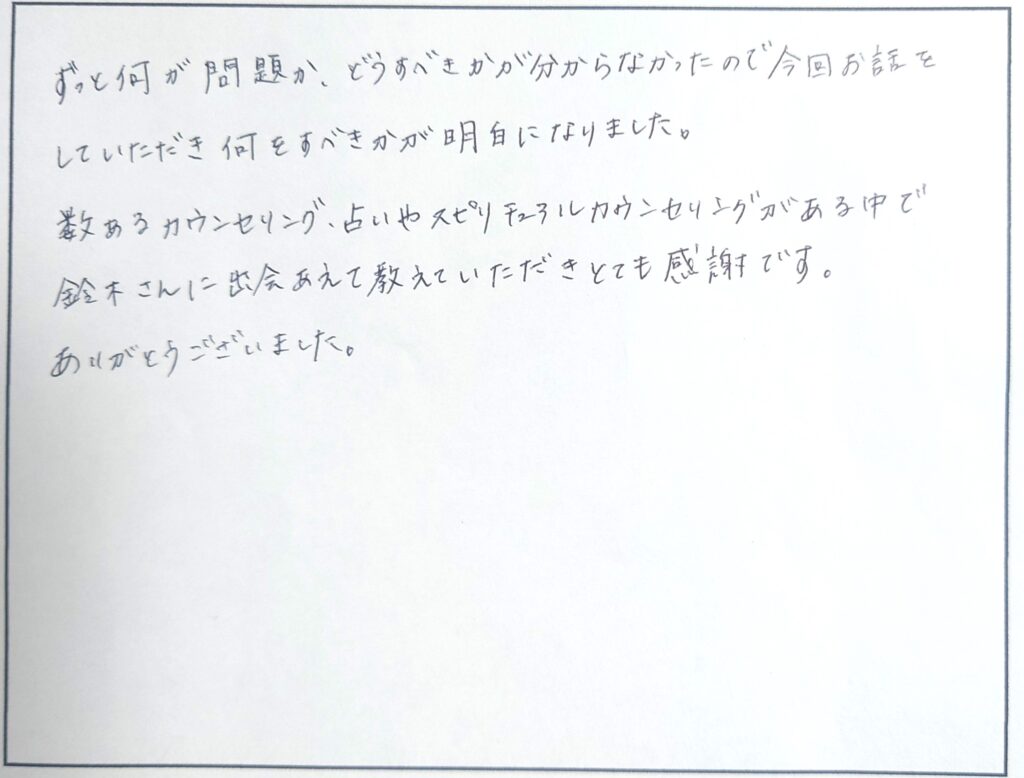 ずっと何が問題か、どうすべきかが分からなかったので今回お話を
していただき何をすべきかが明白になりました。
数あるカウンセリング、占いやスピリチュアルカウンセリングがある中で
鈴木さんに出会あえて教えていただきとても感謝です。
ありがとうございました。